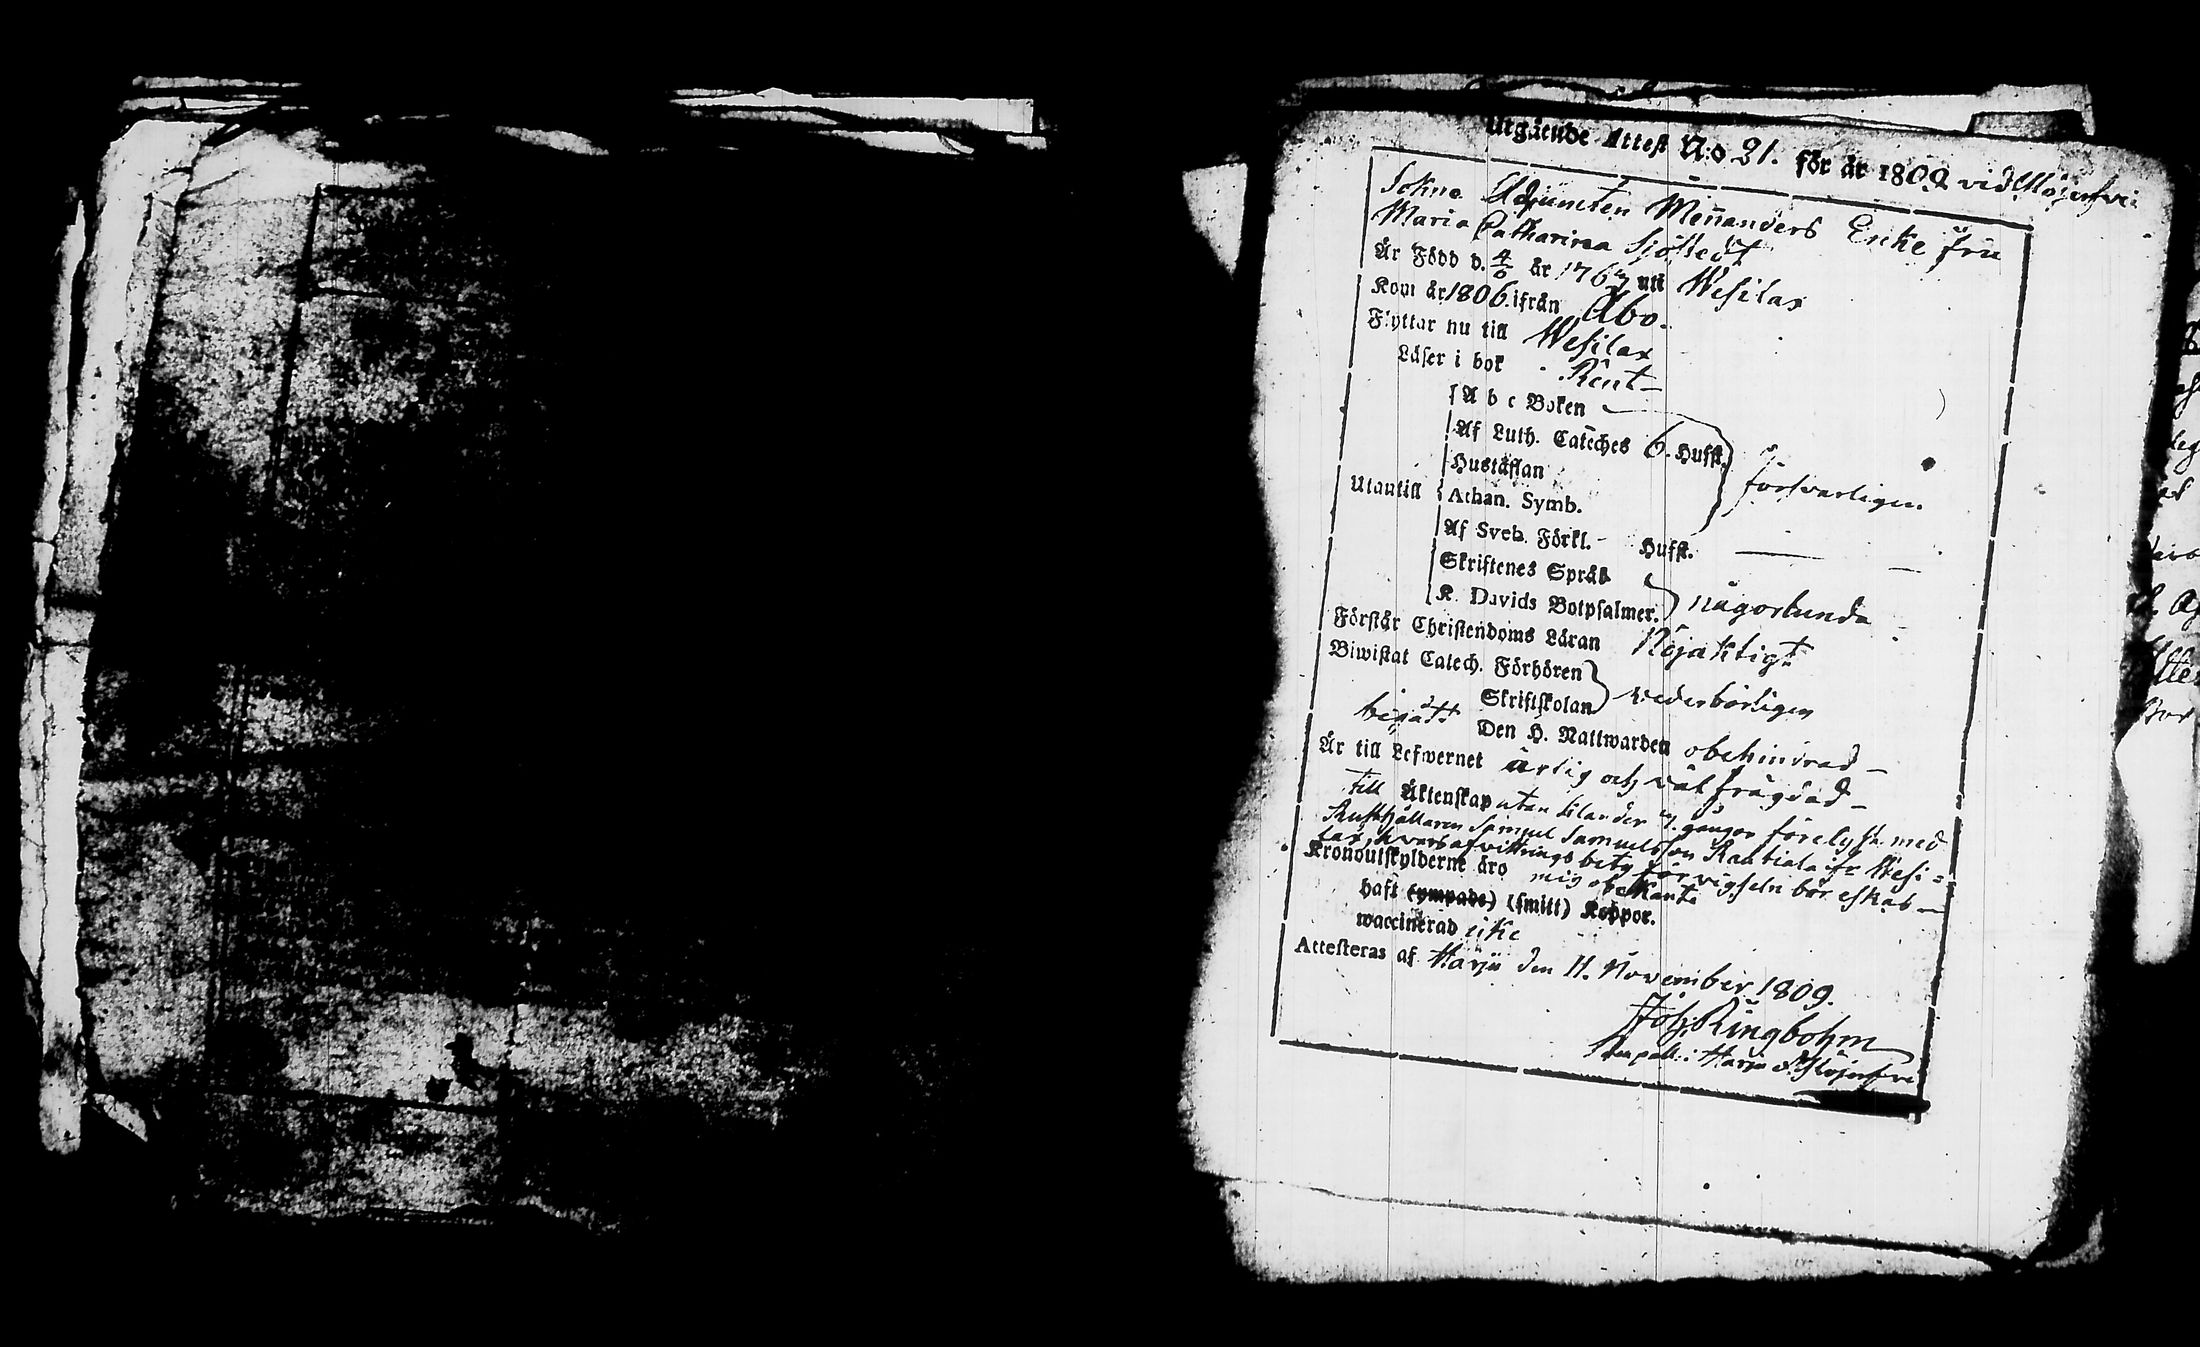 Utgående Attest N:o 31. för år 1809 vid Slöjenfvi
Sokne Adjuncten Menanders Enke fru
Maria Catharina Sjöstedt
Är Född d. 4/6 år 1767 uti Wesilax
Kom år 1806 ifrån Åbo.
Flyttar nu till Wesilax
Läser i bok Rent
A b c Boken
Af Luth. Catéches 6. Hufst.
Hustaflan
Utantill Athan. Symb. försvarligen.
Af Sveb. Förkl. Hufst.
Skriftenes Språk
K. Davids Botpsalmer. någorlunda
Förstår Christendoms Läran Nöjaktigt
Biwistat Catech. Förhören
Skriftskolan vederbörligen
begått Den H. Nattwarden obehindrad
Är till Lefwernet ärlig och väl frägdad
Till Äktenskap utan klander 3. gånger förelyst med
Rusthållaren Samuel Samuelsson Rautiala ifr Wesi=
lax, hvars afvittrings betyg för vigseln bör eskas
Kronoutskylderne äro mig obekanta
haft (ympade) (smitt) Koppor.
waccinerad icke
Attesteras af Harju den 11. November 1809.
Joh. Ringbohm
i Harju